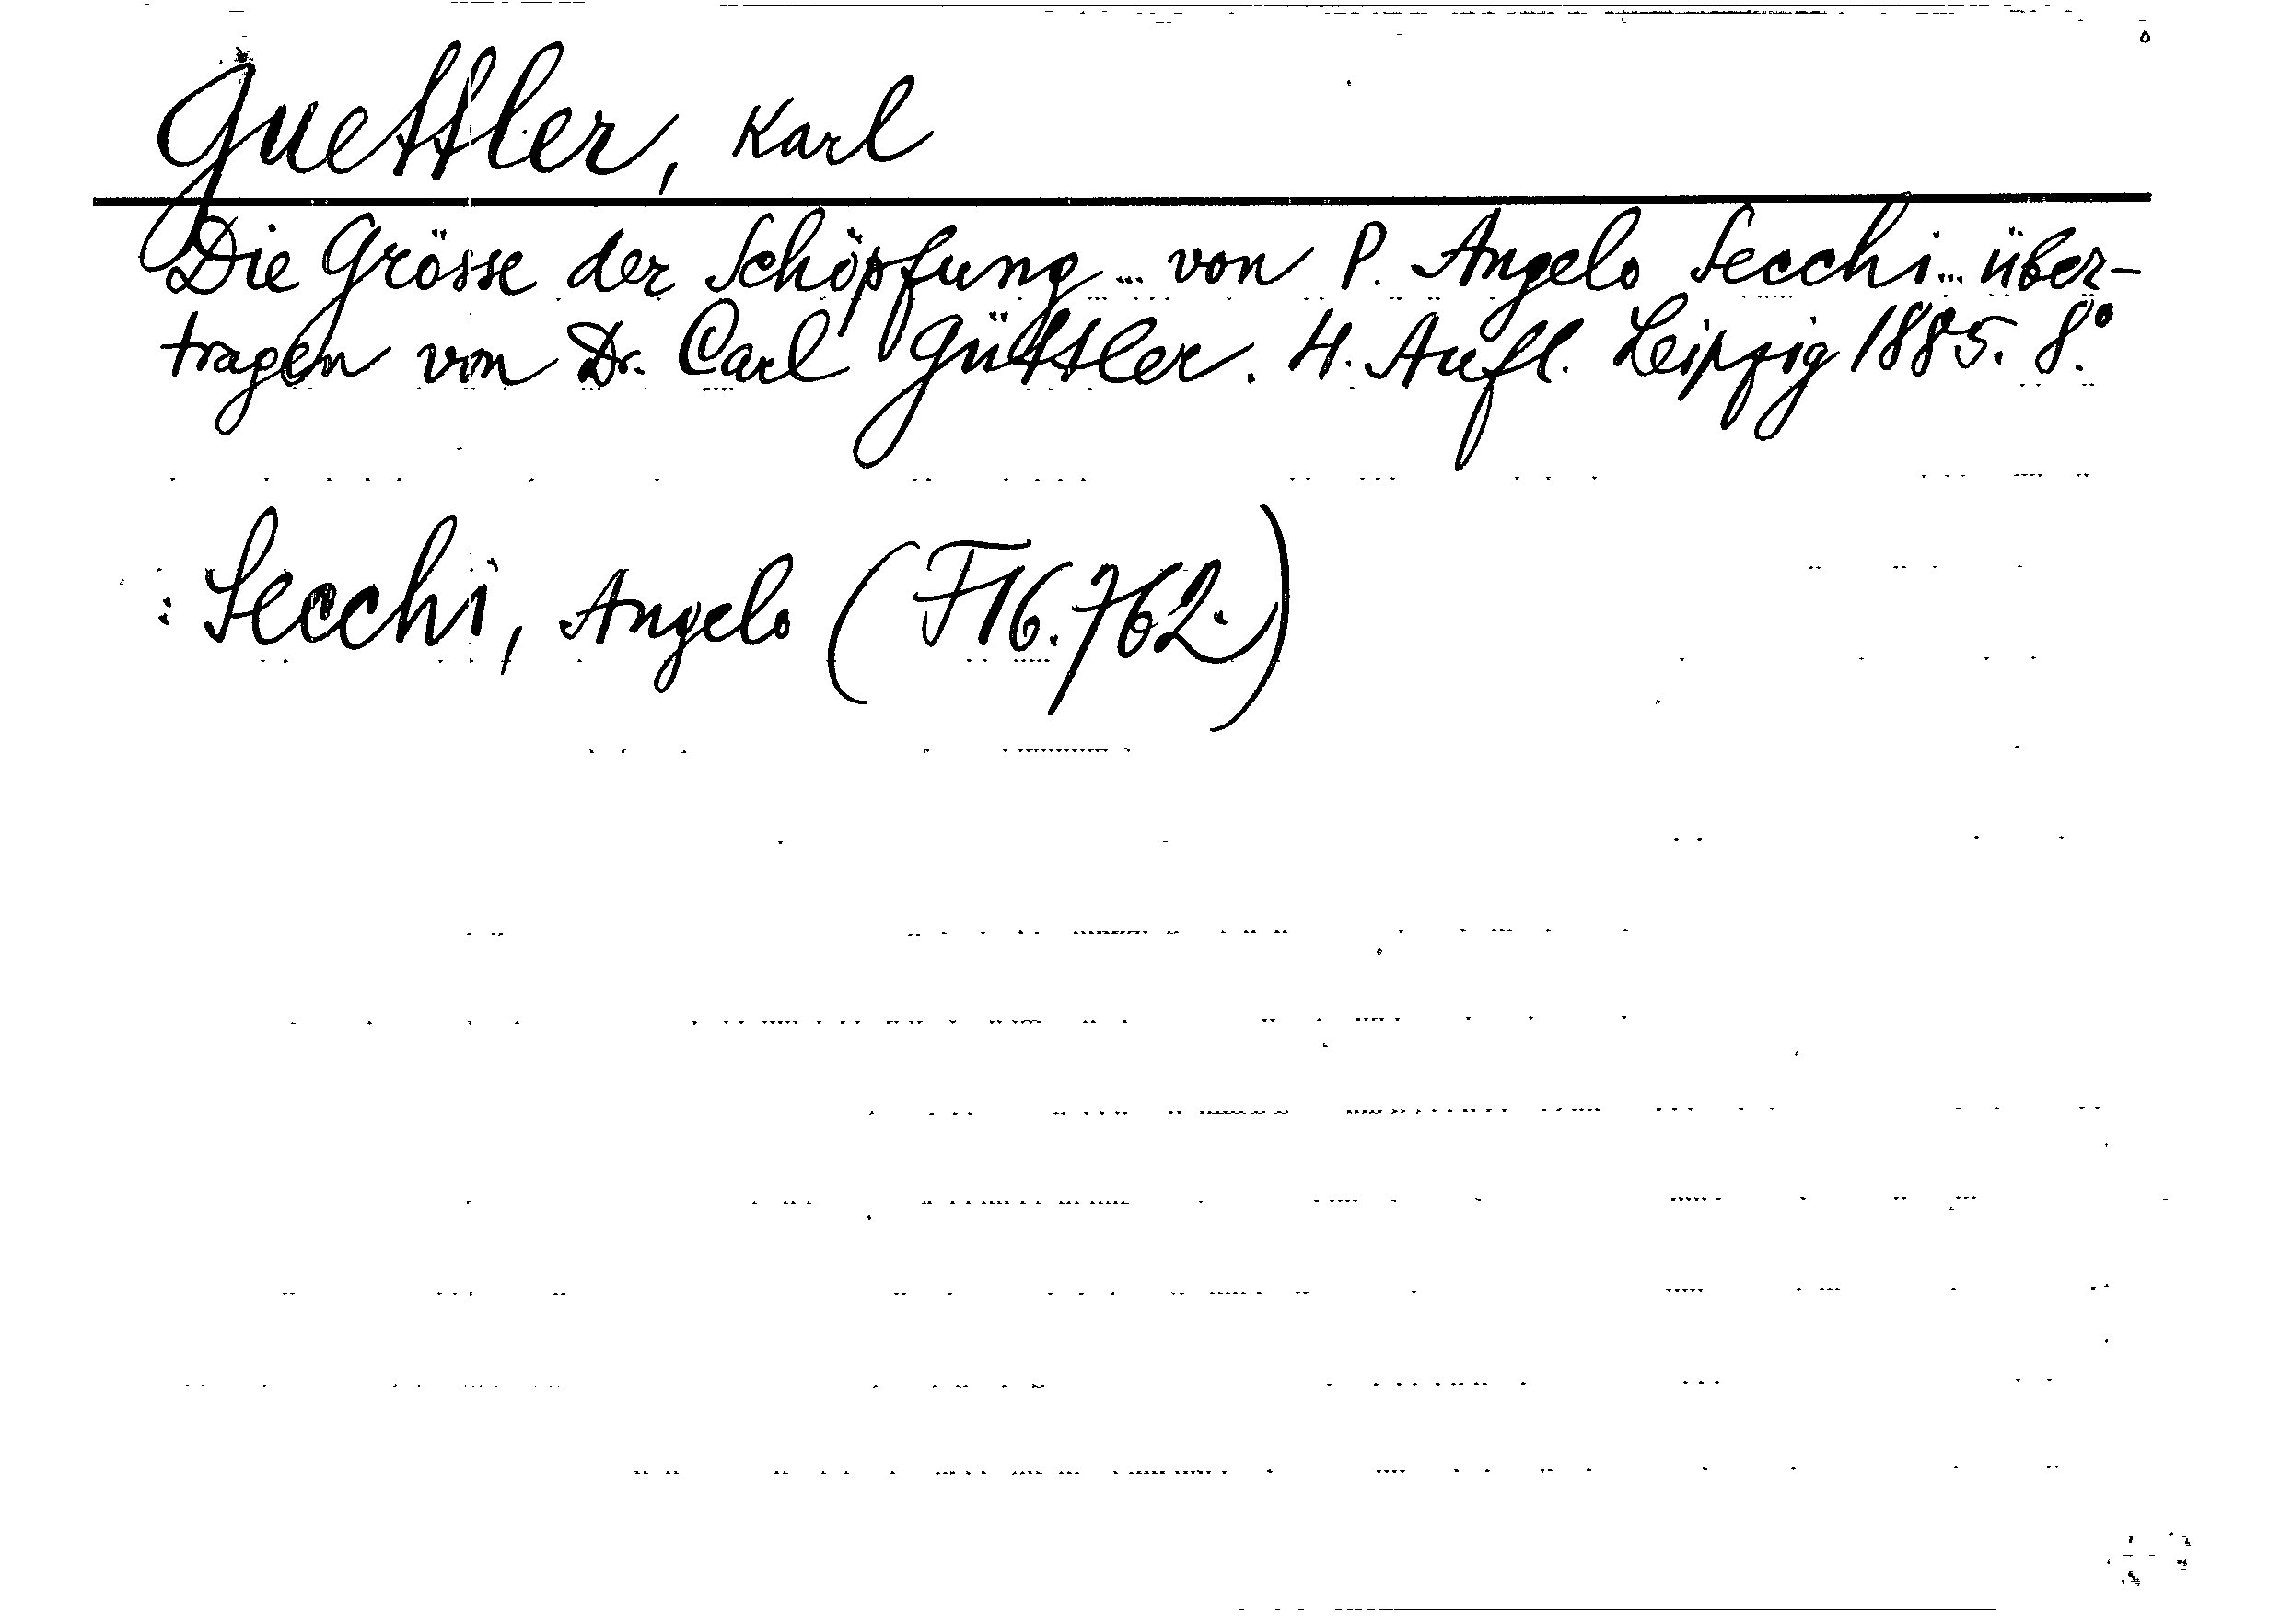 Guettler, Karl
Die Grösse der Schöpfung... von P. Angelo Secchi... über-
tragen von Dr. Carl Güttler. 4. Aufl. Leipzig 1885. 8.°
: Secchi, Angelo (F16.762.)